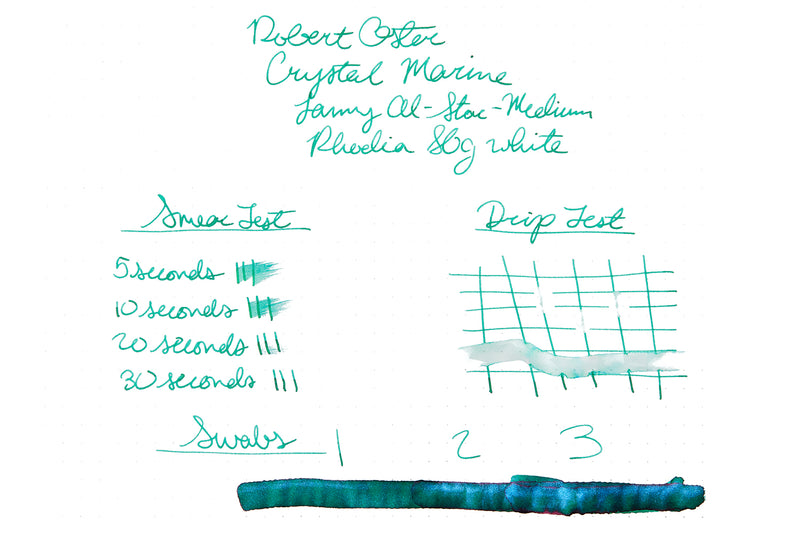 Robert Oster
Crystal Marine
Lamy Al-Star-Medium
Rhodia 80g white
Smear Test
Drip Test
5 seconds
10 seconds
20 seconds
30 seconds
Swabs 1 2 3